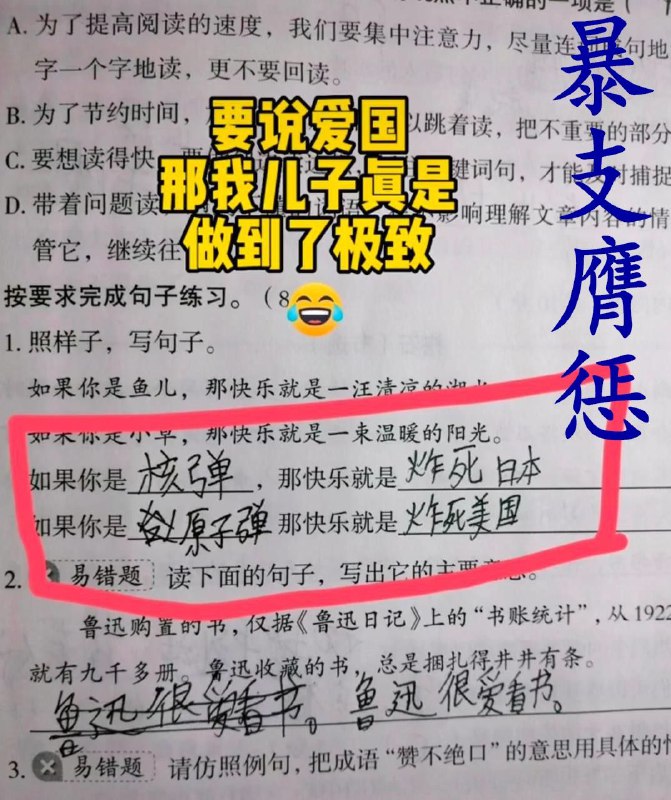 暴支膺惩
A. 为了提高阅读的速度，我们要集中注意力，尽量连
字一个字地读，更不要回读。
B. 为了节约时间，
以跳着读，把不重要的部分
C. 要想读得快
键词句，才能及时捕捉
D. 带着问题读
影响理解文章内容的情
管它，继续往
要说爱国
那我儿子真是
做到了极致
按要求完成句子练习。（8
1. 照样子，写句子。
如果你是鱼儿，那快乐就是一汪清凉的湖水
如果你是小草，那快乐就是一束温暖的阳光。
如果你是核弹，那快乐就是炸死日本
如果你是原子弹那快乐就是炸死美国
2. 易错题 读下面的句子，写出它的主要意思。
鲁迅购置的书，仅据《鲁迅日记》上的“书账统计”，从1922
就有九千多册。鲁迅收藏的书，总是捆扎得井井有条。
鲁迅很爱看书。鲁迅很爱看书。
3. 易错题 请仿照例句，把成语“赞不绝口”的意思用具体的情